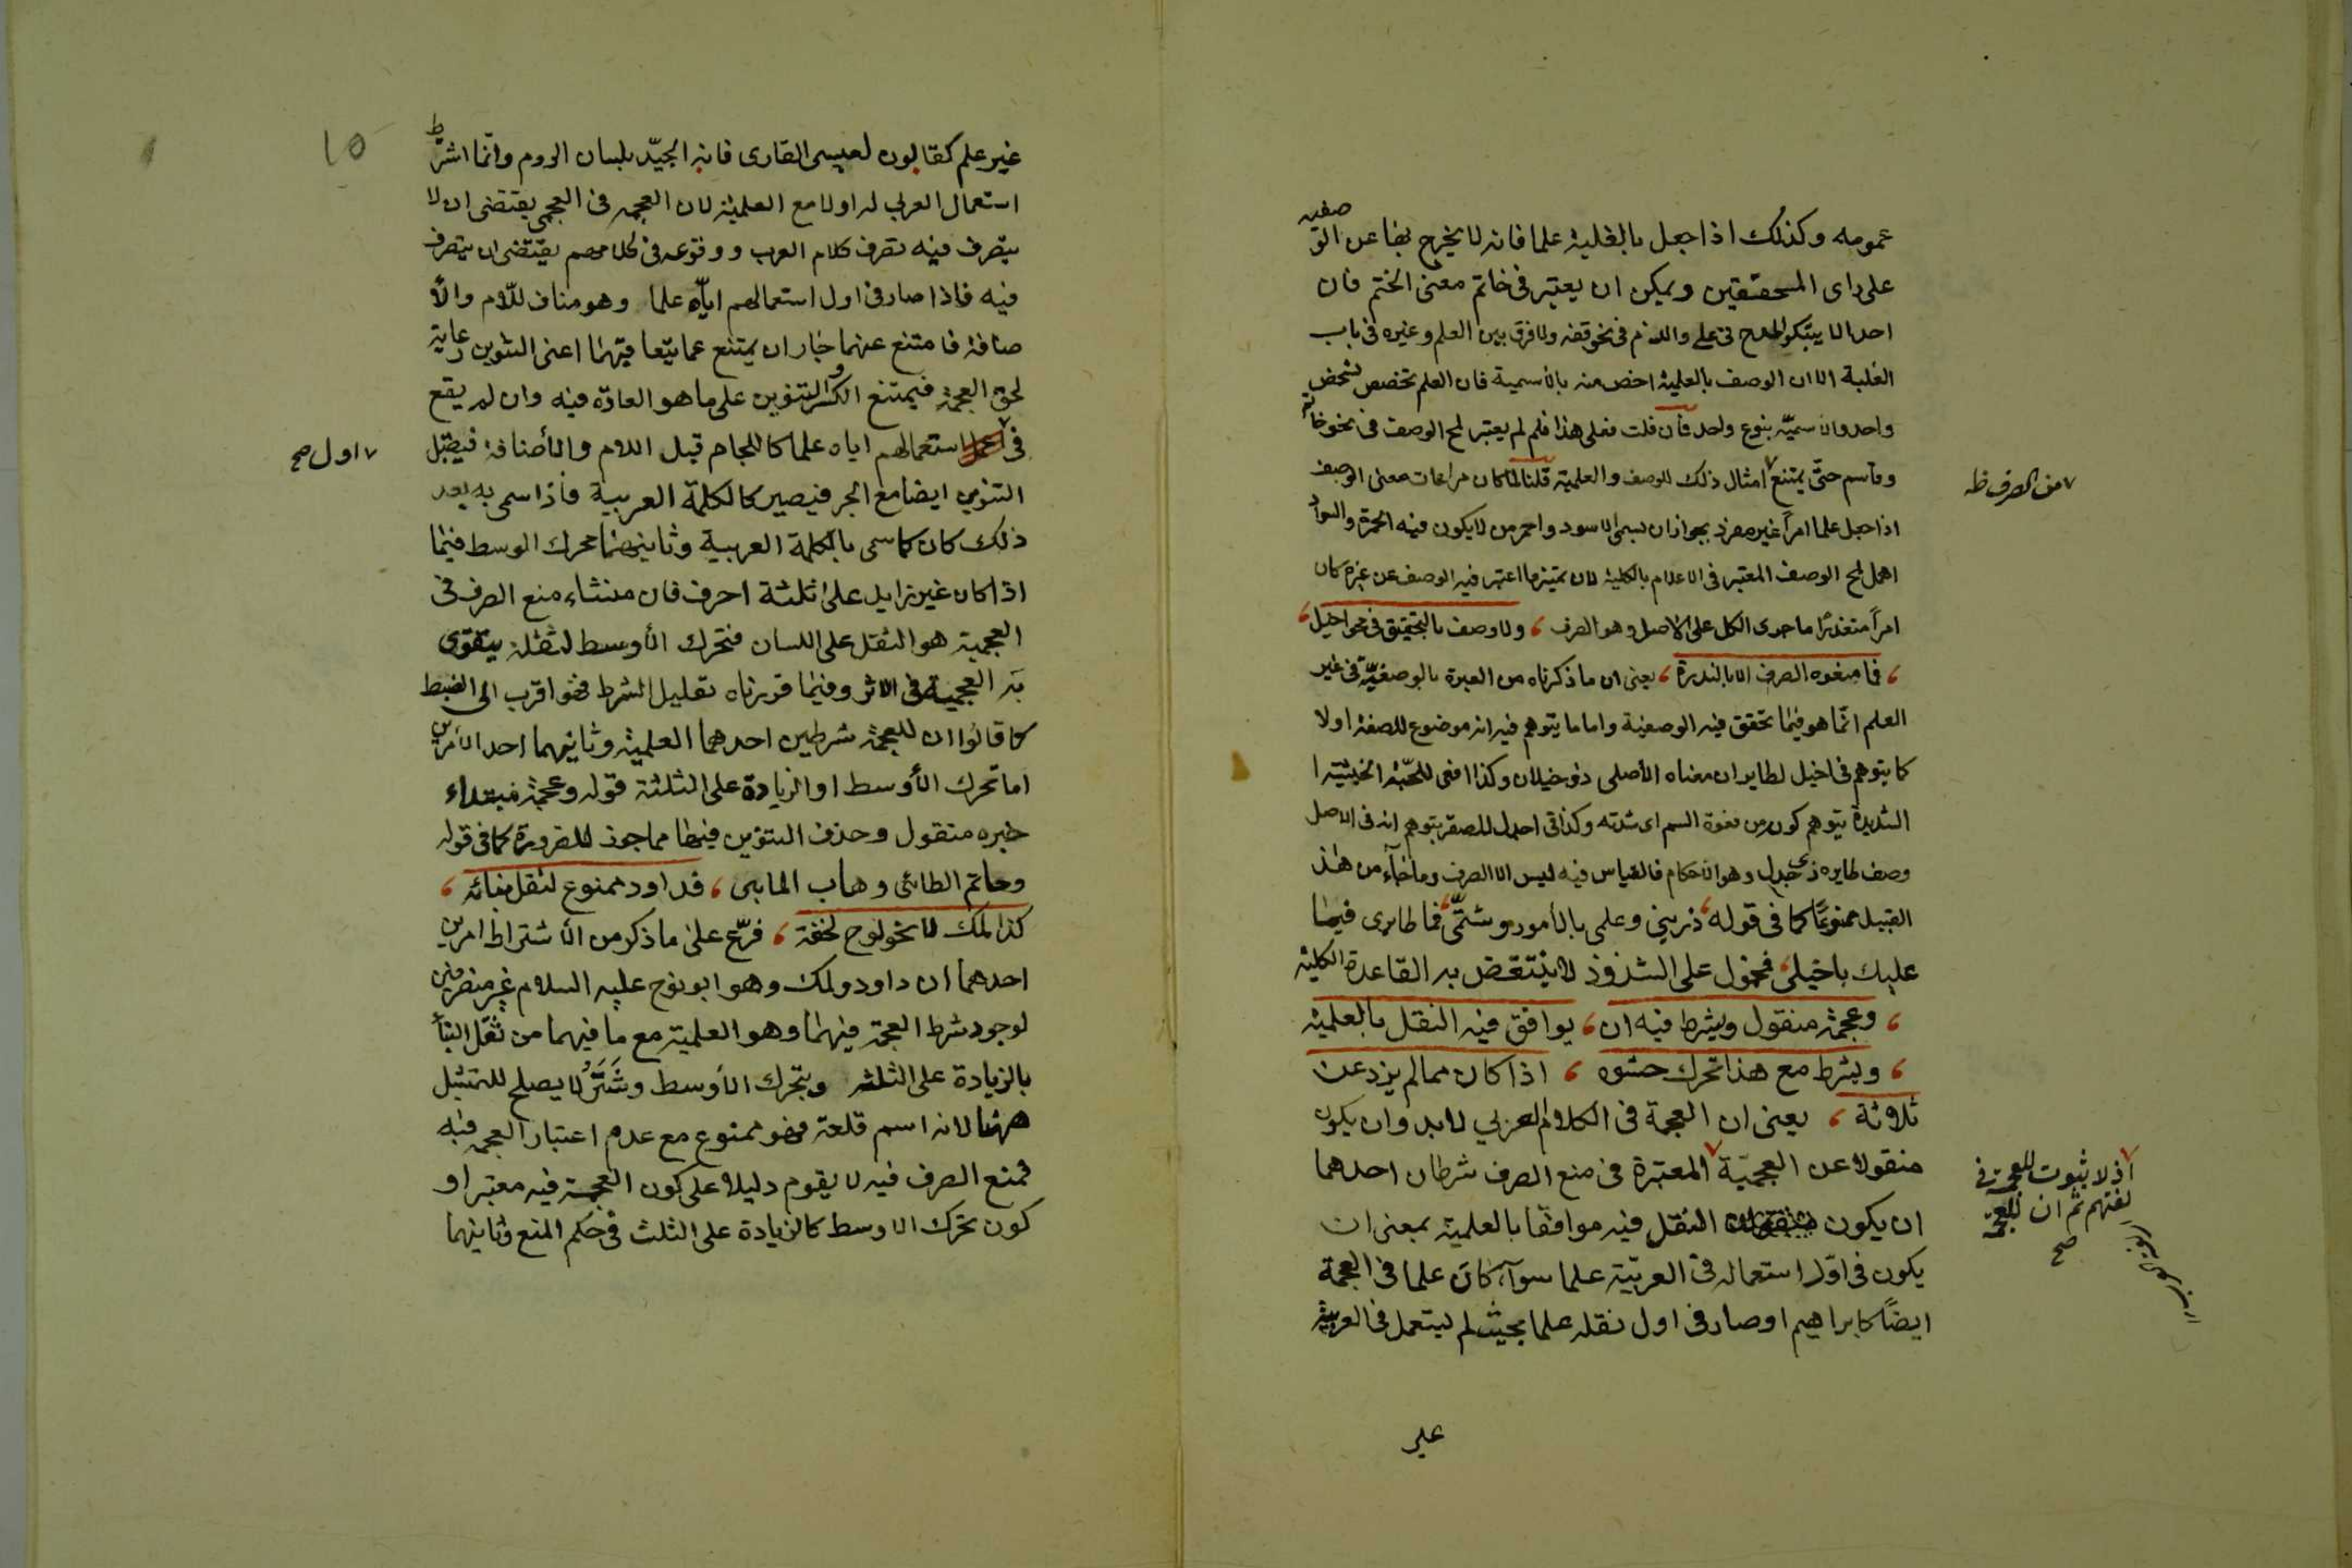 عمومه وكذلك اذا جعل بالغلبة علما فانه لا يخرج بها عن الوصفية
على راى المحققين ويمكن ان يعتبر فى خاتم معنى الختم فان
احدا لا فى على واللازم فى نحو ولا فرق بين العلم وغيره فى باب
الغلبة الا ان الوصف بالعلمية اخص منه بالاسمية فان العلم تخصص لشخص
واحد والاسمية بنوع واحد فان قلت فعلى هذا فلم لم يعتبر لمح الوصف فى نحو خاتم
وقاسم حتى يمتنع امثال ذلك للوصف والعلمية قلنا لما كان مراعات معنى الوصف
من الصرف ظ
اذا جعل علما امرا غير مفرد بجواز ان يسمى الاسود واحمر من لا يكون فيه الحمرة والسواد
اهمل لمح الوصف المعتبر فى الاعلام بالكلية لان تميز ما اعتبر فيه الوصف عن غيره كان
امرا متعذرا ما جرى الكل على الاصل وهو الصرف ولا وصف بالتحقيق فى نحو اخيل
فما منعوه الصرف الا بالندرة يعنى ان ما ذكرناه من العبرة بالوصفية فى غير
العلم انما هو فيما تحقق فيه الوصفية واما ما يتوهم فيه انه موضوع للصفة اولا
كما يتوهم فى اخيل لطاير ان معناه الأصلى ذو خيلان وكذا افعى للحية الخبيثة
الشديدة يتوهم كونه من فعوة السم اى شدته وكذا فى اجدل للصقر يتوهم انه فى الاصل
وصف لطاير ذى جدل وهو الاحكام فالقياس فيه ليس الا الصرف وما جاء من هذ
القبيل ممنوعا كما فى قوله ذرينى وعلمى بالأمور وشيمتى فما طايرى فيها
عليك باخيلى فمحمول على الشذوذ لا ينتقض به القاعدة الكلية
وعجمة منقول ويشرط فيه ان يوافق فيه النقل بالعلمية
ويشرط مع هذا تحرك حشوه اذا كان مما لم يزد عن
ثلاثة يعنى ان العجمة فى الكلام العربي لابد وان يكون
منقولا عن العجمية المعتبرة فى منع الصرف شرطان احدهما
اذ لا ثبوت للعجمة فى
لغتهم ثم ان للعجمة
صح
ان يكون النقل فيه موافقا بالعلمية بمعنى ان
يكون فى اول استعماله فى العربية علما سوآء كان علما فى العجمة
ايضا كابراهيم او صار فى اول نقله علما بحيث لم يستعمل فى العربية
غير
١٥
غير علم كقالون لعيسى القارى فانه الجيد بلسان الروم وانما اشرط
استعمال العرب له اولا مع العلمية لان العجمة فى العجمى يقتضى ان لا
يتصرف فيه تصرف كلام العرب ووقوعه فى كلامهم يقتضى ان يتصرف
فيه فاذا صار فى اول استعمالهم اياه علما وهو مناف للام والأ
ضافة فامتنع عنهما جاز ان يمتنع عما يتعاقبهما اعنى التنوين رعاية
لحق العجمة فيمتنع الكسر والتنوين على ما هو العادة فيه وان لم يقع
فى استعمالهم اياه علما كاللجام قبل اللام والأضافة فيقبل
اول صح
التنوين ايضا مع الجر فيصير كالكلمة العربية فاذا سمى به بعد
ذلك كان كما سمى بالكلمة العربية وثانيهما تحرك الوسط فيما
اذا كان غير زايد على ثلثة احرف فان منشاء منع الصرف فى
العجمية هو الثقل على اللسان فتحرك الأوسط لثقله يتقوى
به العجمية فى الاثر وفيما قررناه تقليل الشرط فهو اقرب الى الضبط
كما قالوا ان للعجمة شرطين احدهما العلمية وثانيهما احد الامرين
اما تحرك الأوسط او الزيادة على الثلثة قوله وعجمة مبتداء
خبره منقول وحذف التنوين فيها مما جوز للضرورة كما فى قوله
وحاتم الطائى وهاب المايى فداود ممنوع لثقل بنائه
كذا لمك لا نحو نوح لخفة فرع على ما ذكر من الأشتراط امرين
احدهما ان داود ولمك وهو ابو نوح عليه السلام غير منصرفين
لوجود شرط العجمة فيهما وهو العلمية مع ما فيهما من ثقل البنأ
بالزيادة على الثلثة وبتحرك الأوسط وشتر لا يصلح للتمثيل
ههنا لانه اسم قلعة فهو ممنوع مع عدم اعتبار العجمة فيه
فمنع الصرف فيه لا يقوم دليلا على كون العجمة فيه معتبرا و
كون تحرك الاوسط كالزيادة على الثلث فى حكم المنع وثانيهما